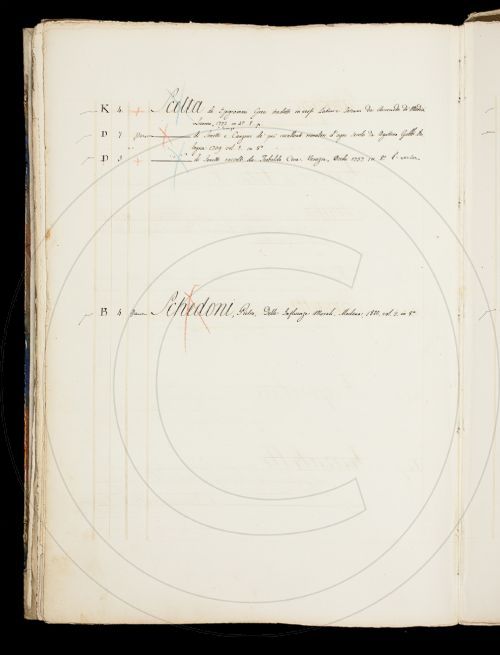 K 4. + Scelta di Epigrammi Greci tradotti in versi Latini e Toscani da
1772 in 4° f. p.
D 7 di Sonetti e Canzoni de' più eccellenti rimatori d'ogni secolo da Agostino Gobbi. Bo
logna 1709 vol. in 8°
D 3 + di Sonetti raccolti da Teobaldo Ceva. Venezia, Occhi 1757 in 8°
B 4 Schedoni, Pietro, Delle Influenze Morali, Modena, 1810, vol. 2. in 8°
C